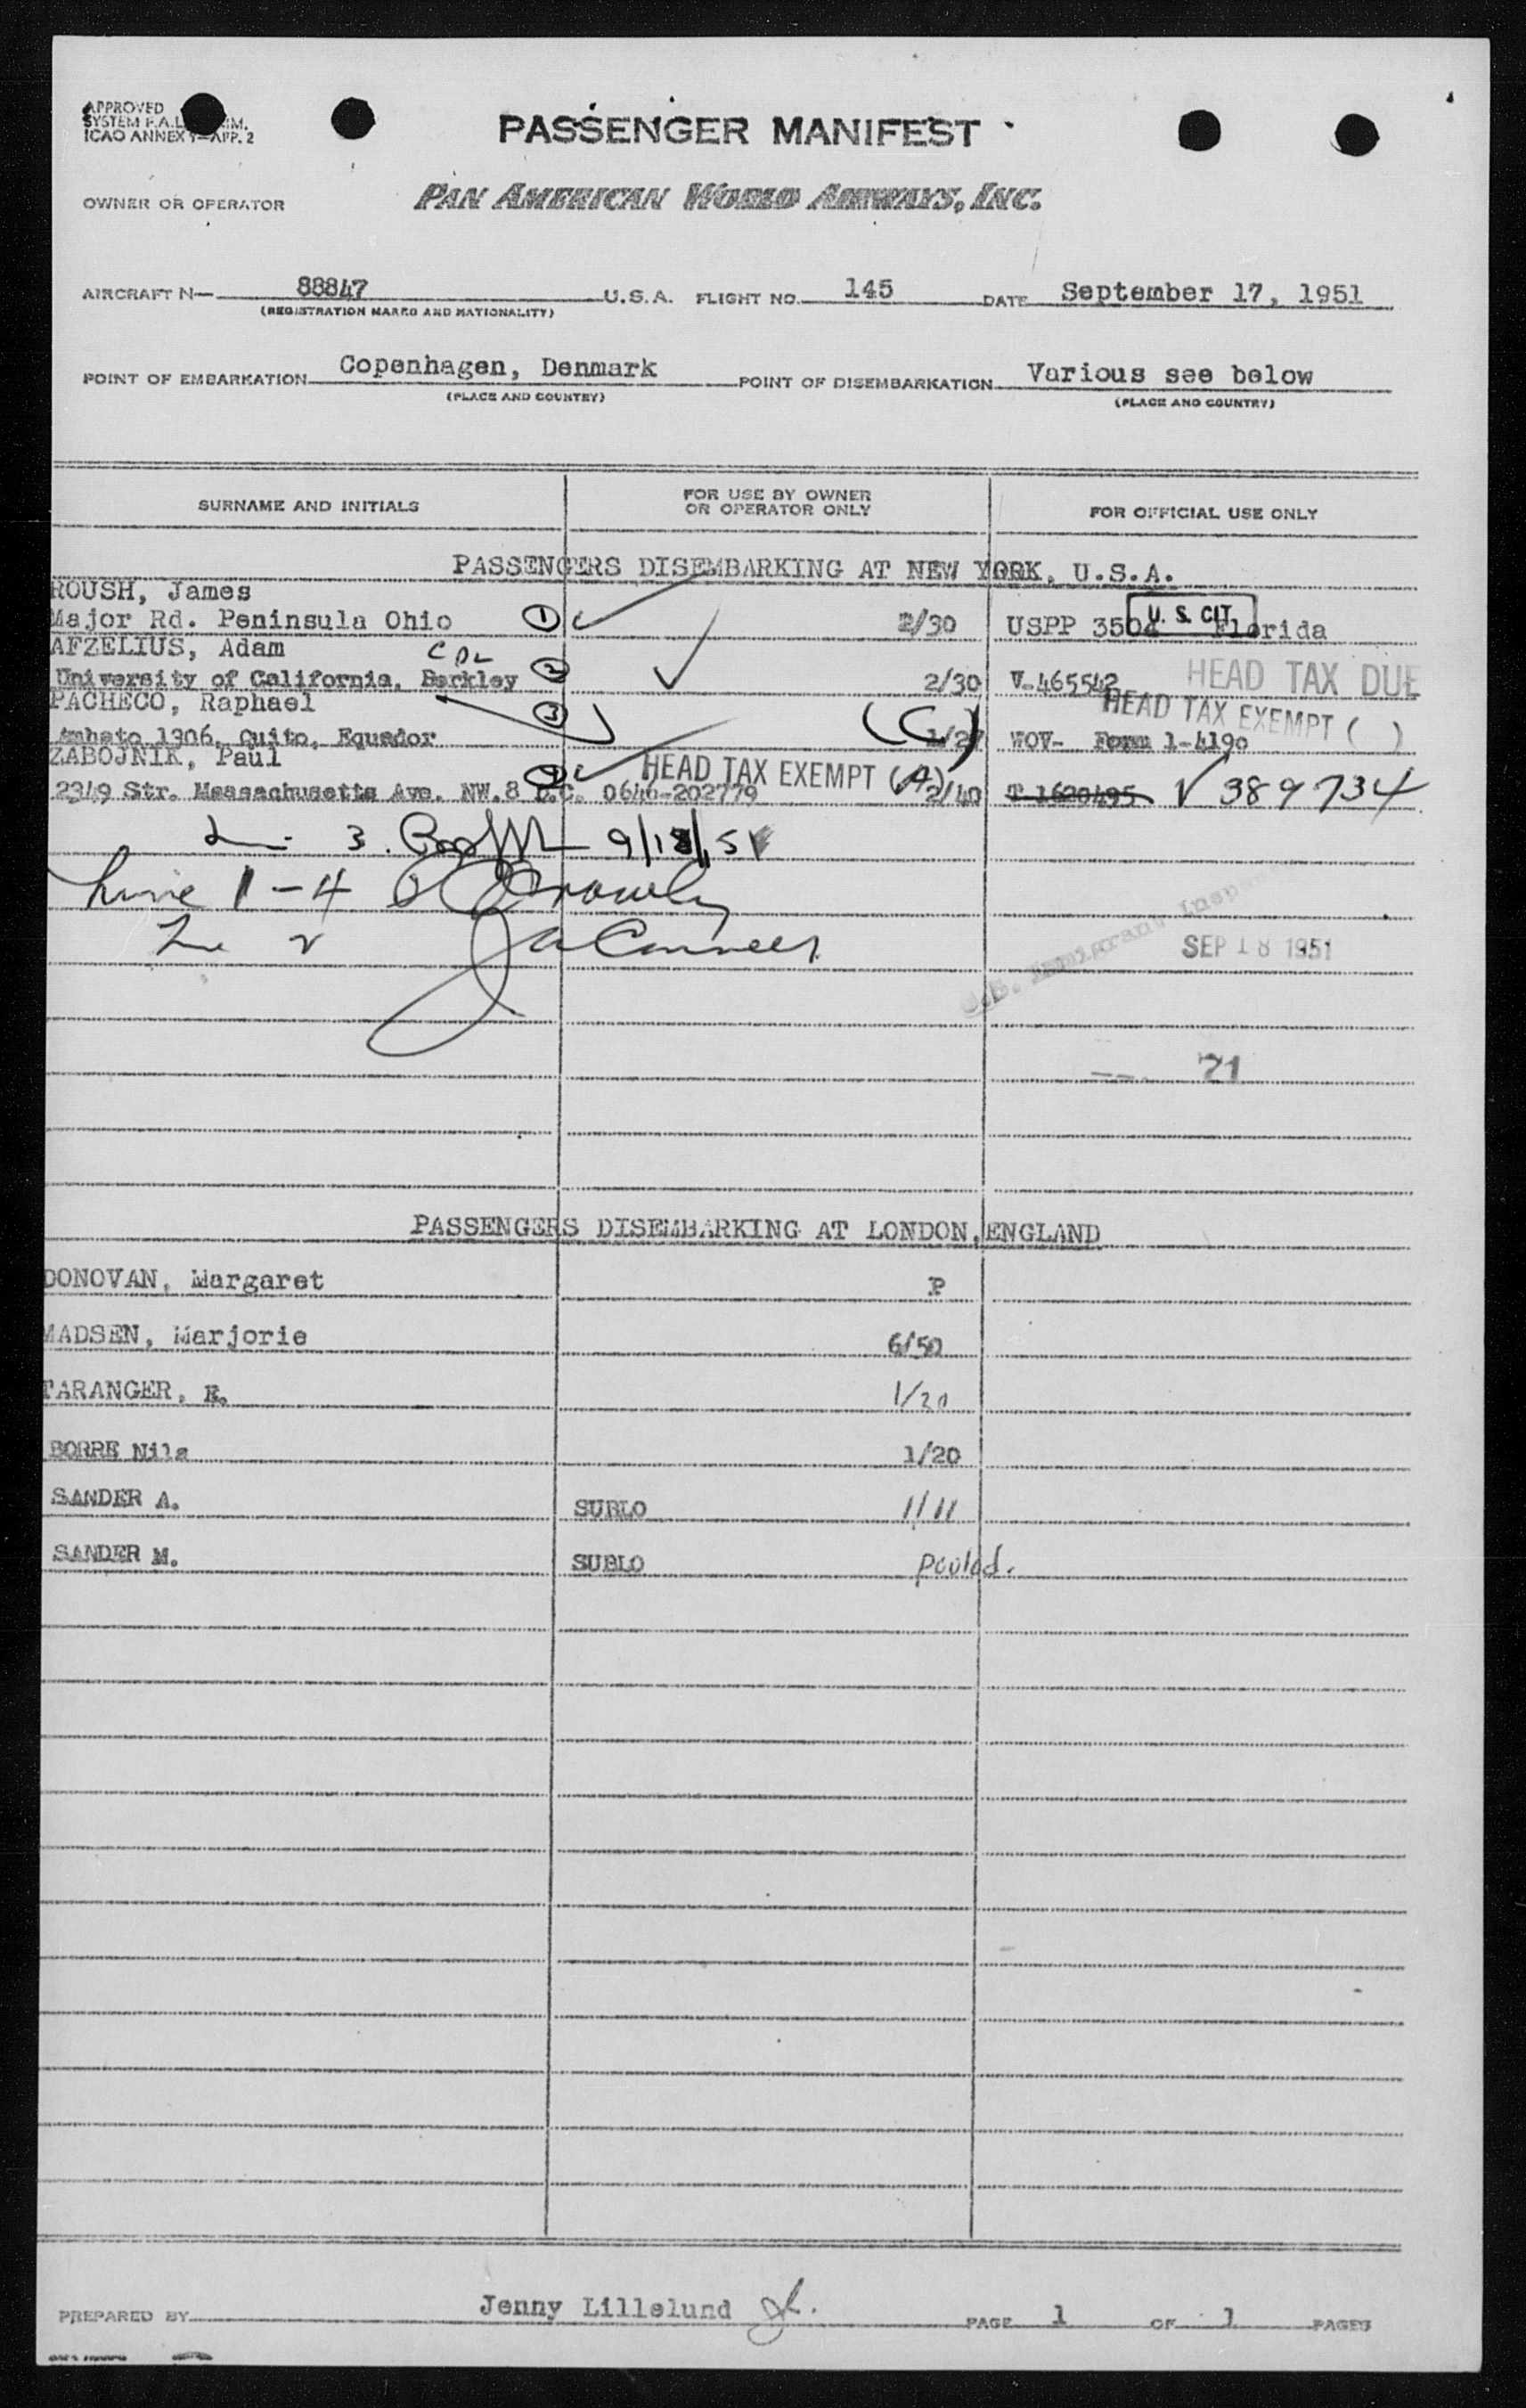 APPROVED
SYSTEM F.A.L.
ICAO ANNEX 9—APP. 2
PASSENGER MANIFEST
OWNER OR OPERATOR
PAN AMERICAN WORLD AIRWAYS, INC.
AIRCRAFT N— 88847 U.S.A. FLIGHT NO. 145 DATE September 17, 1951
(REGISTRATION MARKS AND NATIONALITY)
POINT OF EMBARKATION Copenhagen, Denmark POINT OF DISEMBARKATION Various see below
(PLACE AND COUNTRY) (PLACE AND COUNTRY)
SURNAME AND INITIALS FOR USE BY OWNER OR OPERATOR ONLY FOR OFFICIAL USE ONLY
PASSENGERS DISEMBARKING AT NEW YORK, U.S.A.
ROUSH, James
Major Rd. Peninsula Ohio 1 2/30 USPP 3504 U. S. CIT. Florida
AFZELIUS, Adam
University of California, Berkley 2 2/30 V-465542 HEAD TAX DUE
PACHECO, Raphael HEAD TAX EXEMPT ( )
Ambato 1306, Quito, Equador 3 (C) 1/27 WOV- Form 1-4190
ZABOJNIK, Paul HEAD TAX EXEMPT (A)
2349 Str. Massachusetts Ave. NW.8 D.C. 4 0646-202779 2/40 T-1620495 V 389734
3. 9/18/51
Line 1-4
SEP 18 1951
U.S. Immigrant Insp
71
PASSENGERS DISEMBARKING AT LONDON, ENGLAND
DONOVAN, Margaret P
MADSEN, Marjorie 6/50
TARANGER, R. 1/20
BORRE Nils 1/20
SANDER A. SUBLO 1/11
SANDER M. SUBLO pooled.
PREPARED BY Jenny Lillelund JL. PAGE 1 OF 1 PAGES